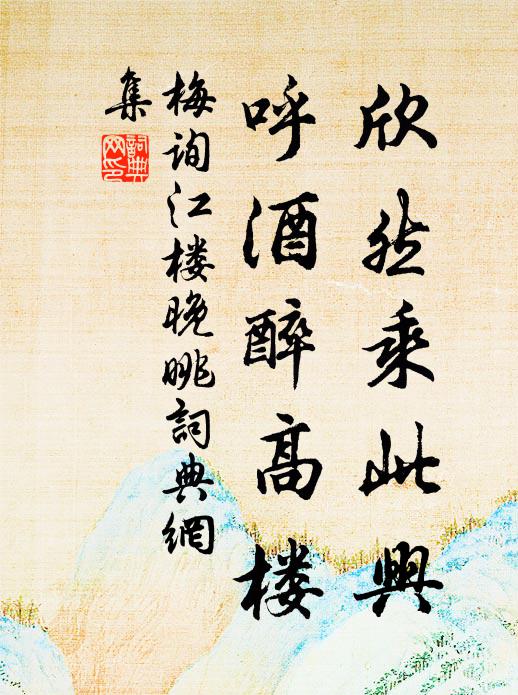 欣然乘此興
呼酒醉高楼
梅询江楼晚眺詞典網
集
詞典
网印